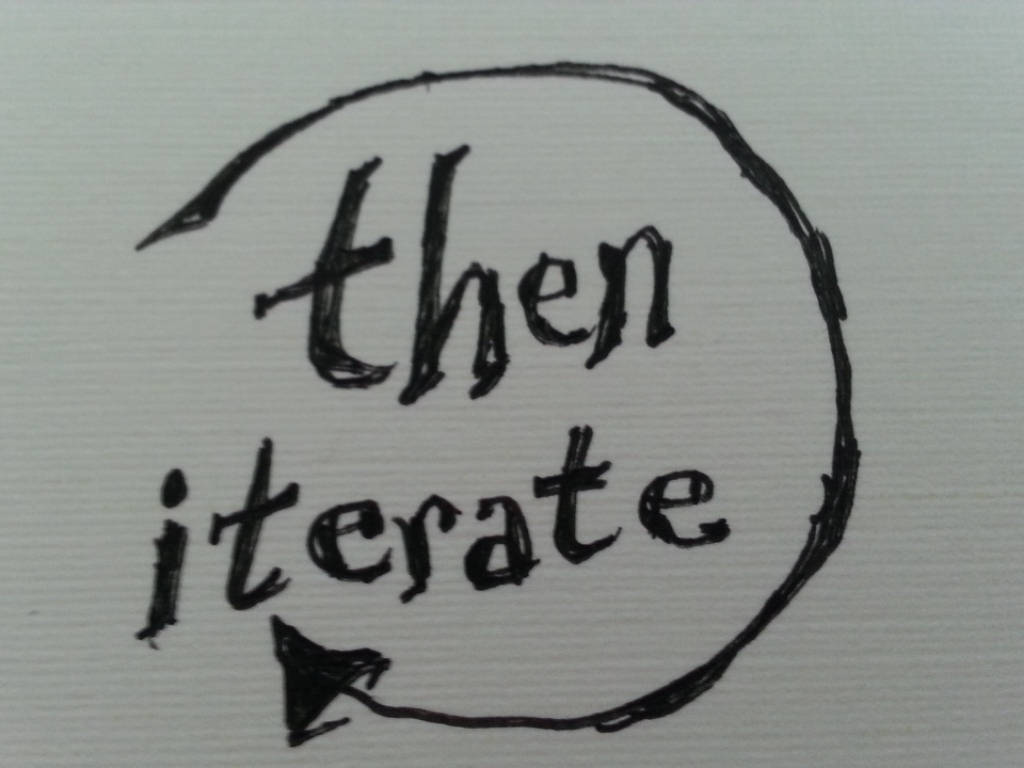 then
iterate